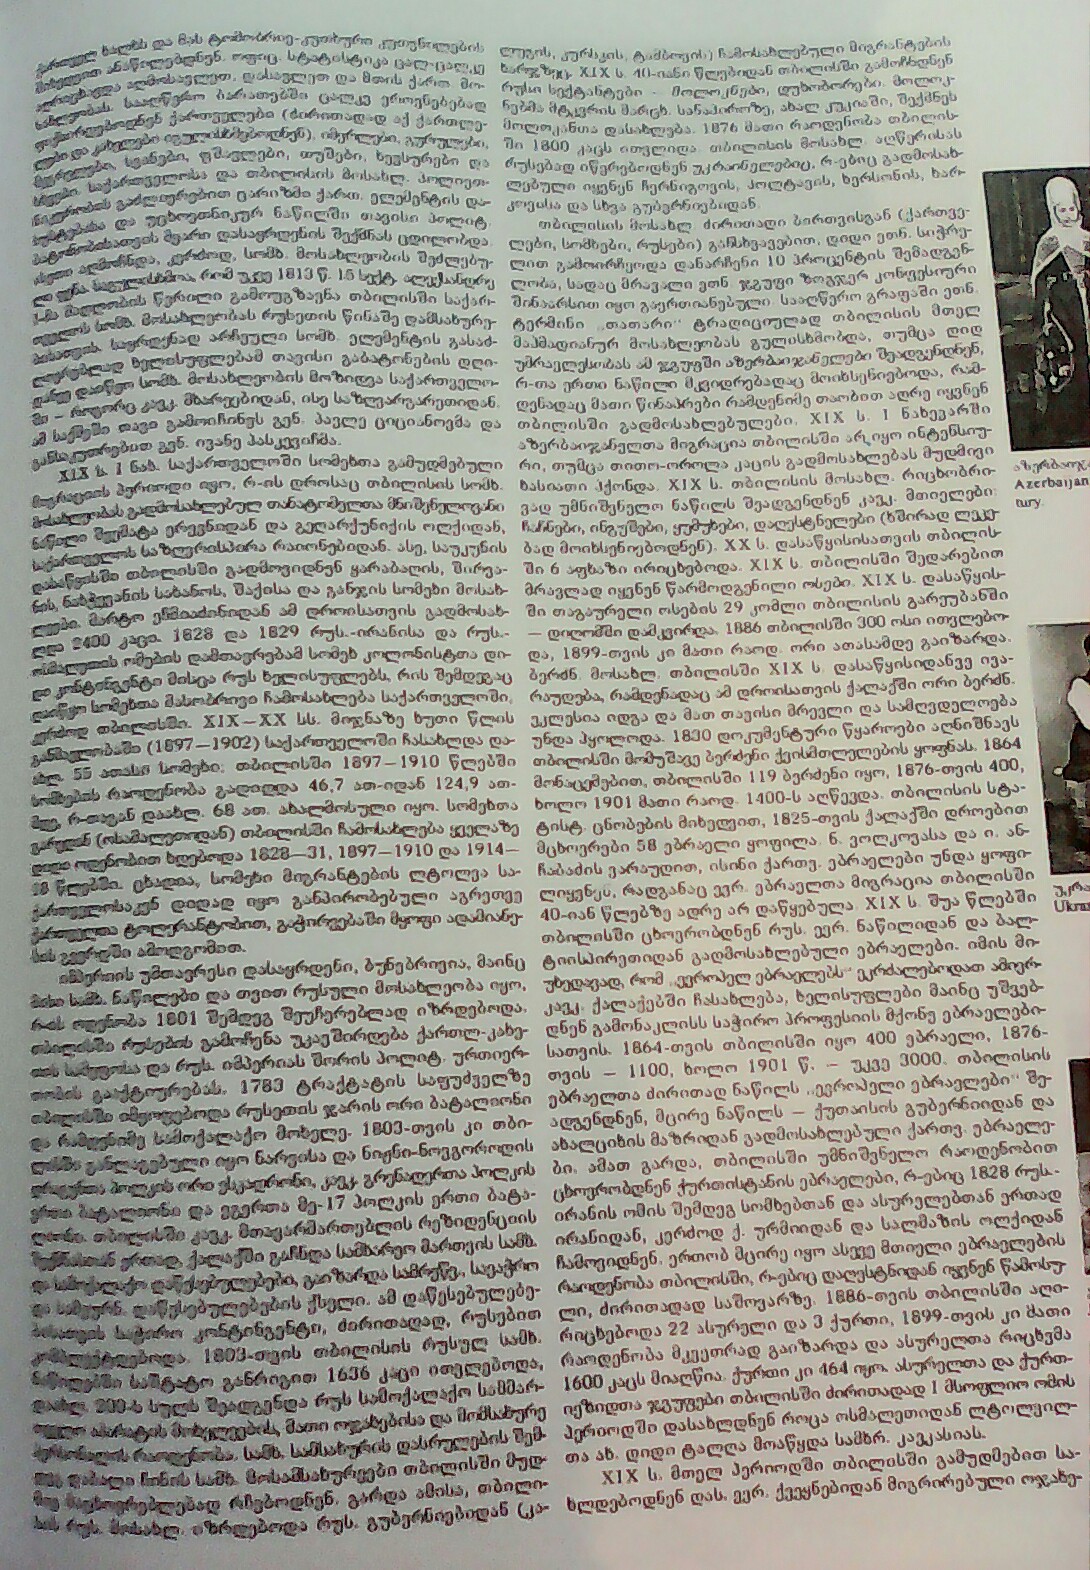 ქართველ ხალხს და მას ტომობრივ-კუთხური კუთვნილების
მიხედვით ანაწილებდნენ. ოფიც. სტატისტიკა ცალ-ცალკე
აღრიცხავდა აღმოსავლეთ, დასავლეთ და მთის ქართ. მო-
სახლეობას. სააღწერო ბარათებში ცალკე ეროვნებებად
ფიქსირდებოდნენ ქართველები (ძირითადად აქ ქართლე-
ლები და კახელები იგულისხმებოდნენ), იმერლები, გურულები,
მეგრელები, სვანები, ფშავლები, თუშები, ხევსურები და
სხვები. საქართველოსა და თბილისის მოსახლ. პოლიეთ-
ნიკურობის გაძლიერებით ცარიზმი ქართ. ელემენტის და-
სუსტებასა და უცხოეთნიკურ ნაწილში თავისი პოლიტ.
ბატონობისათვის მყარი დასაყრდენის შექმნას ცდილობდა.
ასეთი აღმოჩნდა, კერძოდ, სომხ. მოსახლეობის შეძლებუ-
ლი ფენა. საგულისხმოა, რომ უკვე 1813 წ. 15 სექტ. ალექსანდრე
I-მა მადლობის წერილი გამოუგზავნა თბილისში საქარ-
თველოს სომხ. მოსახლეობას რუსეთის წინაშე დამსახურე-
ბისათვის. საყრდენად არჩეული სომხ. ელემენტის გასაძ-
ლიერებლად ხელისუფლებამ თავისი გაბატონების დღი-
დანვე დაიწყო სომხ. მოსახლეობის მოზიდვა საქართველო-
ში – როგორც კავკ. მხარეებიდან, ისე საზღვარგარეთიდან.
ამ საქმეში თავი გამოიჩინეს გენ. პავლე ციციანოვმა და
განსაკუთრებით გენ. ივანე პასკევიჩმა.
XIX ს. I ნახ. საქართველოში სომეხთა გამუდმებული
მიგრაციის პერიოდი იყო, რ-ის დროსაც თბილისის სომხ.
მოსახლეობას გადმოსახლებულ თანატომელთა მნიშვნელოვანი
ნაწილი შეემატა ერევნიდან და გეღარქუნიქის ოლქიდან,
საქართველოს საზღვრისპირა რაიონებიდან. ასე, საუკუნის
დასაწყისში თბილისში გადმოვიდნენ ყარაბაღის, შირვა-
ნის, ნახჭევანის სახანოს, შაქისა და განჯის სომეხი მოსახ-
ლეები. მარტო ეჩმიაძინიდან ამ დროისათვის გადმოსახ-
ლდა 2400 კაცი. 1828 და 1829 რუს.-ირანისა და რუს.-
ოსმალეთის ომების დამთავრებამ სომეხ კოლონისტთა დი-
დი კონტინგენტი მისცა რუს ხელისუფლებს, რის შემდეგაც
დაიწყო სომეხთა მასობრივი ჩამოსახლება საქართველოში,
კერძოდ თბილისში. XIX–XX სს. მიჯნაზე ხუთი წლის
განმავლობაში (1897–1902) საქართველოში ჩასახლდა და-
ახლ. 55 ათასი სომეხი; თბილისში 1897–1910 წლებში
სომხების რაოდენობა გადიდდა 46,7 ათ-იდან 124,9 ათ-
მდე, რ-თაგან დაახლ. 68 ათ. ახალმოსული იყო. სომეხთა
გარედან (ოსმალეთიდან) თბილისში ჩამოსახლება ყველაზე
დიდი ოდენობით ხდებოდა 1828–31, 1897–1910 და 1914–
18 წლებში. ცხადია, სომეხი მიგრანტების ლტოლვა სა-
ქართველოსაკენ დიდად იყო განპირობებული აგრეთვე
ქართველთა ტოლერანტობით, გაჭირვებაში მყოფი ადამიანე-
ბის გვერდში ამოდგომით.
იმპერიის უმთავრესი დასაყრდენი, ბუნებრივია, მაინც
მისი სამხ. ნაწილები და თვით რუსული მოსახლეობა იყო,
რ-ის ოდენობა 1801 შემდეგ შეუჩერებლად იზრდებოდა.
თბილისში რუსების გამოჩენა უკავშირდება ქართლ-კახე-
თის სამეფოსა და რუს. იმპერიას შორის პოლიტ. ურთიერ-
თობის გააქტიურებას. 1783 ტრაქტატის საფუძველზე
თბილისში იმყოფებოდა რუსეთის ჯარის ორი ბატალიონი
და რამდენიმე სამოქალაქო მოხელე. 1803-თვის კი თბი-
ლისში განლაგებული იყო ნარვისა და ნიჟნი-ნოვგოროდის
დრაგუნთა პოლკის ორი ესკადრონი, კავკ. გრენადერთა პოლკის
ერთი ბატალიონი და ეგერთა მე-17 პოლკის ერთი ბატა-
ლიონი. თბილისში კავკ. მთავარმართებლის რეზიდენციის
შექმნასთან ერთად, ქალაქში გაჩნდა სამხარეო მართვის სამხ.
და სამოქალაქო დაწესებულებები, გაიზარდა სამრეწვ., სავაჭრო
და სამეურნ. დაწესებულებების ქსელი. ამ დაწესებულებე-
ბისათვის საჭირო კონტინგენტი, ძირითადად, რუსებით
კომპლექტდებოდა. 1803-თვის თბილისის რუსულ სამხ.
ნაწილებში საშტატო განრიგით 1636 კაცი ითვლებოდა,
დაახლ. 200-ს სულს შეადგენდა რუს სამოქალაქო სამმარ-
თველო აპარატის მოხელეების, მათი ოჯახებისა და მომსახურე
პერსონალის რაოდენობა. სამხ. სამსახურის დასრულების შემ-
დეგ დაბალი ჩინის სამხ. მოსამსახურეები თბილისში მუდ-
მივ მაცხოვრებლებად რჩებოდნენ. გარდა ამისა, თბილი-
სის რუს. მოსახლ. იზრდებოდა რუს. გუბერნიებიდან (კა-
ლუგის, კურსკის, ტამბოვის) ჩამოსახლებული მიგრანტების
ხარჯზეც. XIX ს. 40-იანი წლებიდან თბილისში გამოჩნდნენ
რუსი სექტანტები – მოლოკნები, დუხობორები. მოლოკ-
ნებმა მტკვრის მარცხ. სანაპიროზე, ახალ კუკიაში, შექმნეს
მოლოკანთა დასახლება. 1876 მათი რაოდენობა თბილის-
ში 1800 კაცს ითვლიდა. თბილისის მოსახლ. აღწერისას
რუსებად იწერებოდნენ უკრაინელებიც, რ-ებიც გადმოსახ-
ლებული იყვნენ ჩერნიგოვის, პოლტავის, ხერსონის, ხარ-
კოვისა და სხვა გუბერნიებიდან.
თბილისის მოსახლ. ძირითადი ბირთვისგან (ქართვე-
ლები, სომხები, რუსები) განსხვავებით, დიდი ეთნ. სიჭრე-
ლით გამოირჩეოდა დანარჩენი 10 პროცენტის შემადგენ-
ლობა, სადაც მრავალი ეთნ. ჯგუფი ზოგჯერ კონფესიური
შინაარსით იყო გაერთიანებული. სააღწერო გრაფაში ეთნ.
ტერმინი „თათარი“ ტრადიციულად თბილისის მთელ
მაჰმადიანურ მოსახლეობას გულისხმობდა, თუმცა დიდ
უმრავლესობას ამ ჯგუფში აზერბაიჯანელები შეადგენდნენ,
რ-თა ერთი ნაწილი მკვიდრებადაც მოიხსენიებოდა, რამ-
დენადაც მათი წინაპრები რამდენიმე თაობით ადრე იყვნენ
თბილისში გადმოსახლებულები. XIX ს. I ნახევარში
აზერბაიჯანელთა მიგრაცია თბილისში არ იყო ინტენსიუ-
რი, თუმცა თითო-ოროლა კაცის გადმოსახლებას მუდმივი
ხასიათი ჰქონდა. XIX ს. თბილისის მოსახლ. რიცხობრი-
ვად უმნიშვნელო ნაწილს შეადგენდნენ კავკ. მთიელები:
ჩაჩნები, ინგუშები, ყუმუხები, დაღესტნელები (ხშირად ლეკე-
ბად მოიხსენიებოდნენ). XX ს. დასაწყისისათვის თბილის-
ში 6 აფხაზი ირიცხებოდა. XIX ს. თბილისში შედარებით
მრავლად იყვნენ წარმოდგენილი ოსები. XIX ს. დასაწყის-
ში თაგაური ოსების 29 კომლი თბილისის გარეუბანში
– დიღომში დამკვიდრა. 1886 თბილისში 300 ოსი ითვლებო-
და, 1899-თვის კი მათი რაოდ. ორი ათასამდე გაიზარდა.
ბერძნ. მოსახლ. თბილისში XIX ს. დასაწყისიდანვე ივა-
რაუდება, რამდენადაც ამ დროისათვის ქალაქში ორი ბერძნ.
ეკლესია იდგა და მათ თავისი მრევლი და სამღვდელოება
უნდა ჰყოლოდა. 1830 დოკუმენტური წყაროები აღნიშნავს
თბილისში მომუშავე ბერძენი ქვისმთლელების ყოფნას. 1864
მონაცემებით, თბილისში 119 ბერძენი იყო, 1876-თვის 400,
ხოლო 1901 მათი რაოდ. 1400-ს აღწევდა. თბილისის სტა-
ტისტ. ცნობების მიხედვით, 1825-თვის ქალაქში დროებით
მცხოვრები 58 ებრაელი ყოფილა. ნ. ვოლკოვასა და ი. ან-
ჩაბაძის ვარაუდით, ისინი ქართვ. ებრაელები უნდა ყოფი-
ლიყვნენ, რადგანაც ევრ. ებრაელთა მიგრაცია თბილისში
40-იან წლებზე ადრე არ დაწყებულა. XIX ს. შუა წლებში
თბილისში ცხოვრობდნენ რუს. ევრ. ნაწილიდან და ბალ-
ტიისპირეთიდან გადმოსახლებული ებრაელები. იმის მი-
უხედავად, რომ „ევროპელ ებრაელებს“ ეკრძალებოდათ ამიერ-
კავკ. ქალაქებში ჩასახლება, ხელისუფლები მაინც უშვებ-
დნენ გამონაკლისს საჭირო პროფესიის მქონე ებრაელები-
სათვის. 1864-თვის თბილისში იყო 400 ებრაელი, 1876-
თვის – 1100, ხოლო 1901 წ. – უკვე 3000. თბილისის
ებრაელთა ძირითად ნაწილს „ევროპელი ებრაელები“ შე-
ადგენდნენ, მცირე ნაწილს – ქუთაისის გუბერნიიდან და
ახალციხის მაზრიდან გადმოსახლებული ქართვ. ებრაელე-
ბი. ამათ გარდა, თბილისში უმნიშვნელო რაოდენობით
ცხოვრობდნენ ქურთისტანის ებრაელები, რ-ებიც 1828 რუს.-
ირანის ომის შემდეგ სომხებთან და ასურელებთან ერთად
ირანიდან, კერძოდ ქ. ურმიიდან და სალმაზის ოლქიდან
ჩამოვიდნენ. ერთობ მცირე იყო ასევე მთიელი ებრაელების
რაოდენობა თბილისში, რ-ებიც დაღესტნიდან იყვნენ წამოსუ-
ლი, ძირითადად საშოვარზე. 1886-თვის თბილისში აღი-
რიცხებოდა 22 ასურელი და 3 ქურთი, 1899-თვის კი მათი
რაოდენობა მკვეთრად გაიზარდა და ასურელთა რიცხვმა
1600 კაცს მიაღწია, ქურთი კი 464 იყო. ასურელთა და ქურთ-
იეზიდთა ჯგუფები თბილისში ძირითადად I მსოფლიო ომის
პერიოდში დასახლდნენ როცა ოსმალეთიდან ლტოლვილ-
თა ახ. დიდი ტალღა მოაწყდა სამხრ. კავკასიას.
XIX ს. მთელ პერიოდში თბილისში გამუდმებით სა-
ხლდებოდნენ დას. ევრ. ქვეყნებიდან მიგრირებული ოჯახე-
Azerbaijan
tury.